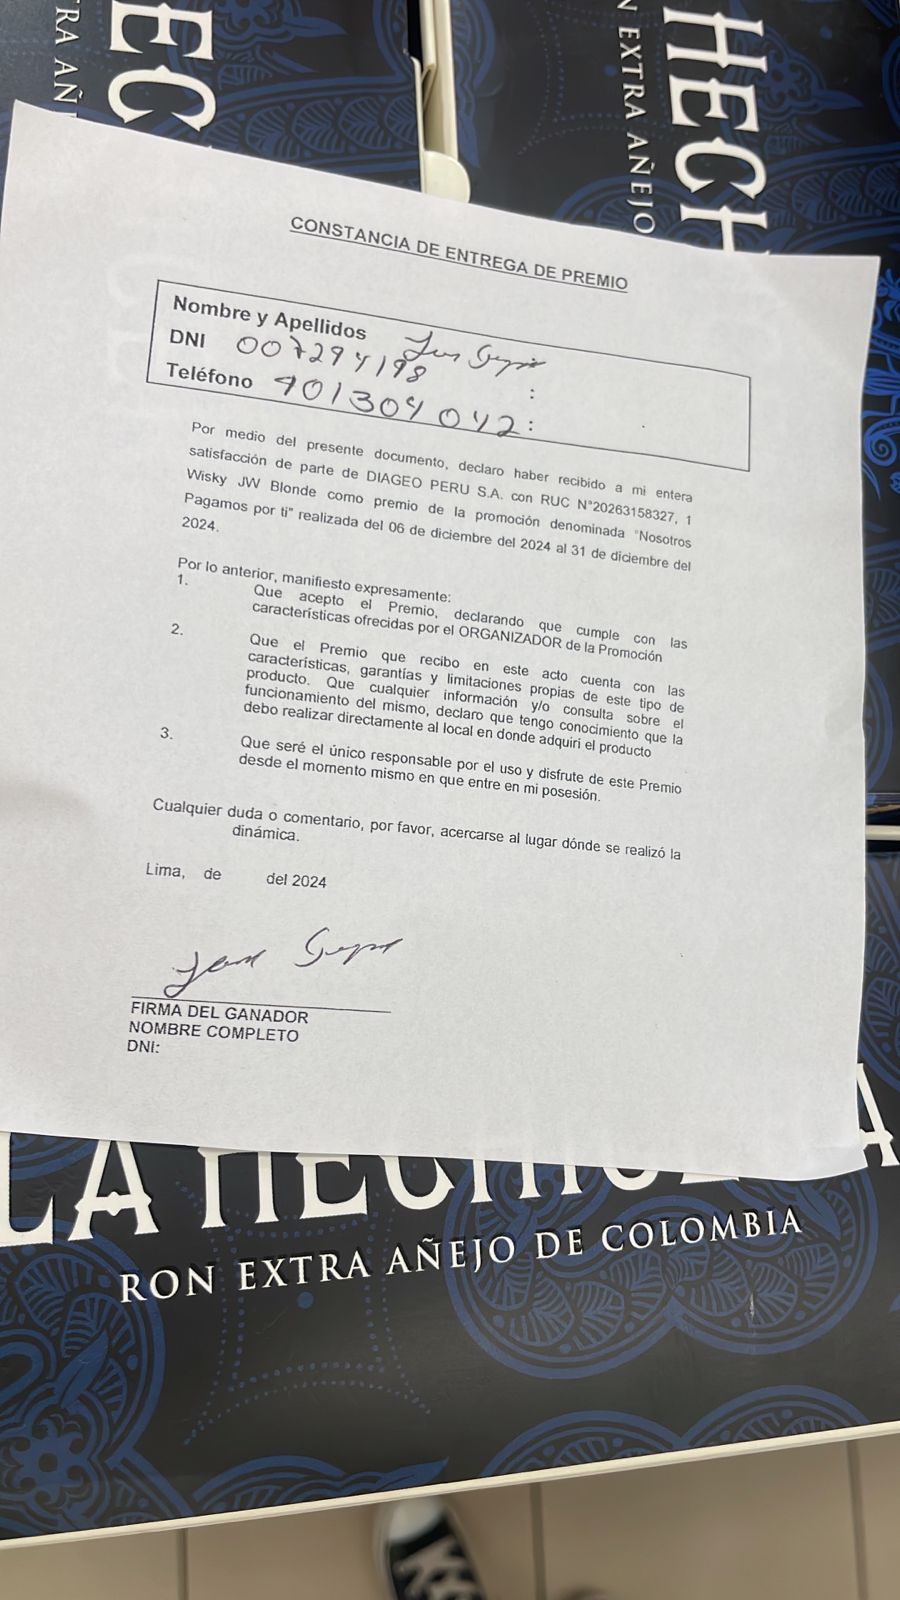 EC
RA AÑ
HECH
N EXTRA AÑEJO
CONSTANCIA DE ENTREGA DE PREMIO
Nombre y Apellidos
DNI 007294198 :
Teléfono 901304042 :
Por medio del presente documento, declaro haber recibido a mi entera
satisfacción de parte de DIAGEO PERU S.A. con RUC N°20263158327, 1
Wisky JW Blonde como premio de la promoción denominada "Nosotros
Pagamos por ti" realizada del 06 de diciembre del 2024 al 31 de diciembre del
2024.
Por lo anterior, manifiesto expresamente:
1. Que acepto el Premio, declarando que cumple con las
características ofrecidas por el ORGANIZADOR de la Promoción
2. Que el Premio que recibo en este acto cuenta con las
características, garantías y limitaciones propias de este tipo de
producto. Que cualquier información y/o consulta sobre el
funcionamiento del mismo, declaro que tengo conocimiento que la
debo realizar directamente al local en donde adquiri el producto
3. Que seré el único responsable por el uso y disfrute de este Premio
desde el momento mismo en que entre en mi posesión.
Cualquier duda o comentario, por favor, acercarse al lugar dónde se realizó la
dinámica.
Lima, de del 2024
FIRMA DEL GANADOR
NOMBRE COMPLETO
DNI:
LA HECHICERA
RON EXTRA AÑEJO DE COLOMBIA